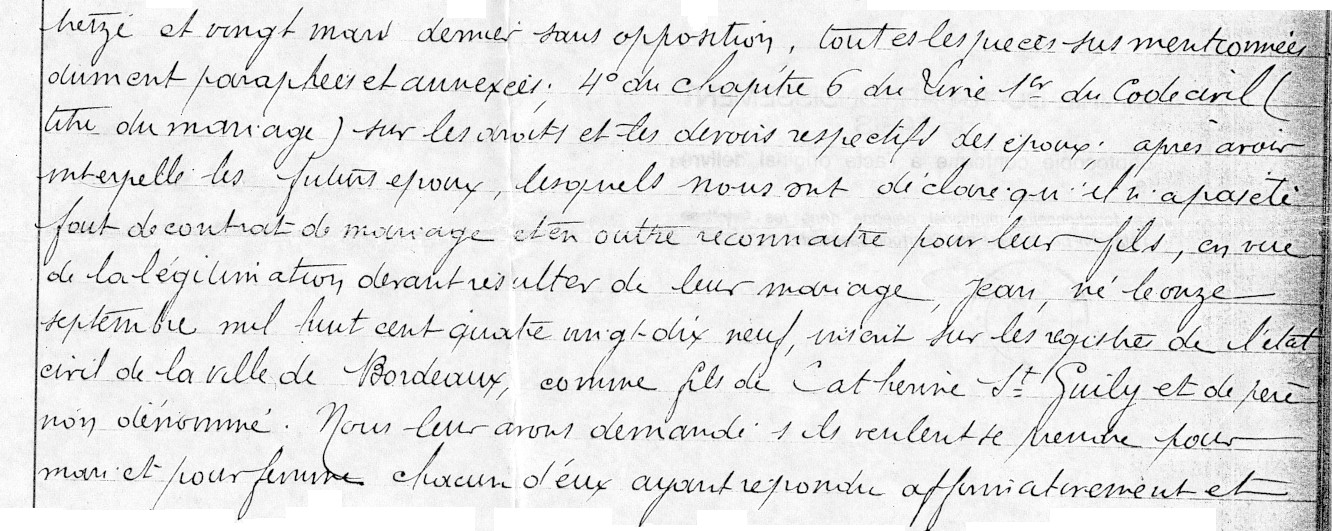 treize et vingt mars dernier sans opposition, toutes les pièces sus mentionnées
dument paraphées et annexées; 4° du chapitre 6 du Livre 1er du Code civil (
titre du mariage) sur les droits et les devoirs respectifs des époux. après avoir
interpellé les futurs epoux, lesquels nous ont déclaré qu'il n'a pas été
fait de contrat de mariage et en outre reconnaitre pour leur fils, en vue
de la légitimation devant résulter de leur mariage, Jean, né le onze
septembre mil huit cent quatre vingt-dix neuf, inscrit sur les registres de l'état
civil de la ville de Bordeaux, comme fils de Catherine St Guily et de père
non dénommé. Nous leur avons demandé s'ils veulent se prendre pour
mari et pour femme chacun d'eux ayant répondu affirmativement et